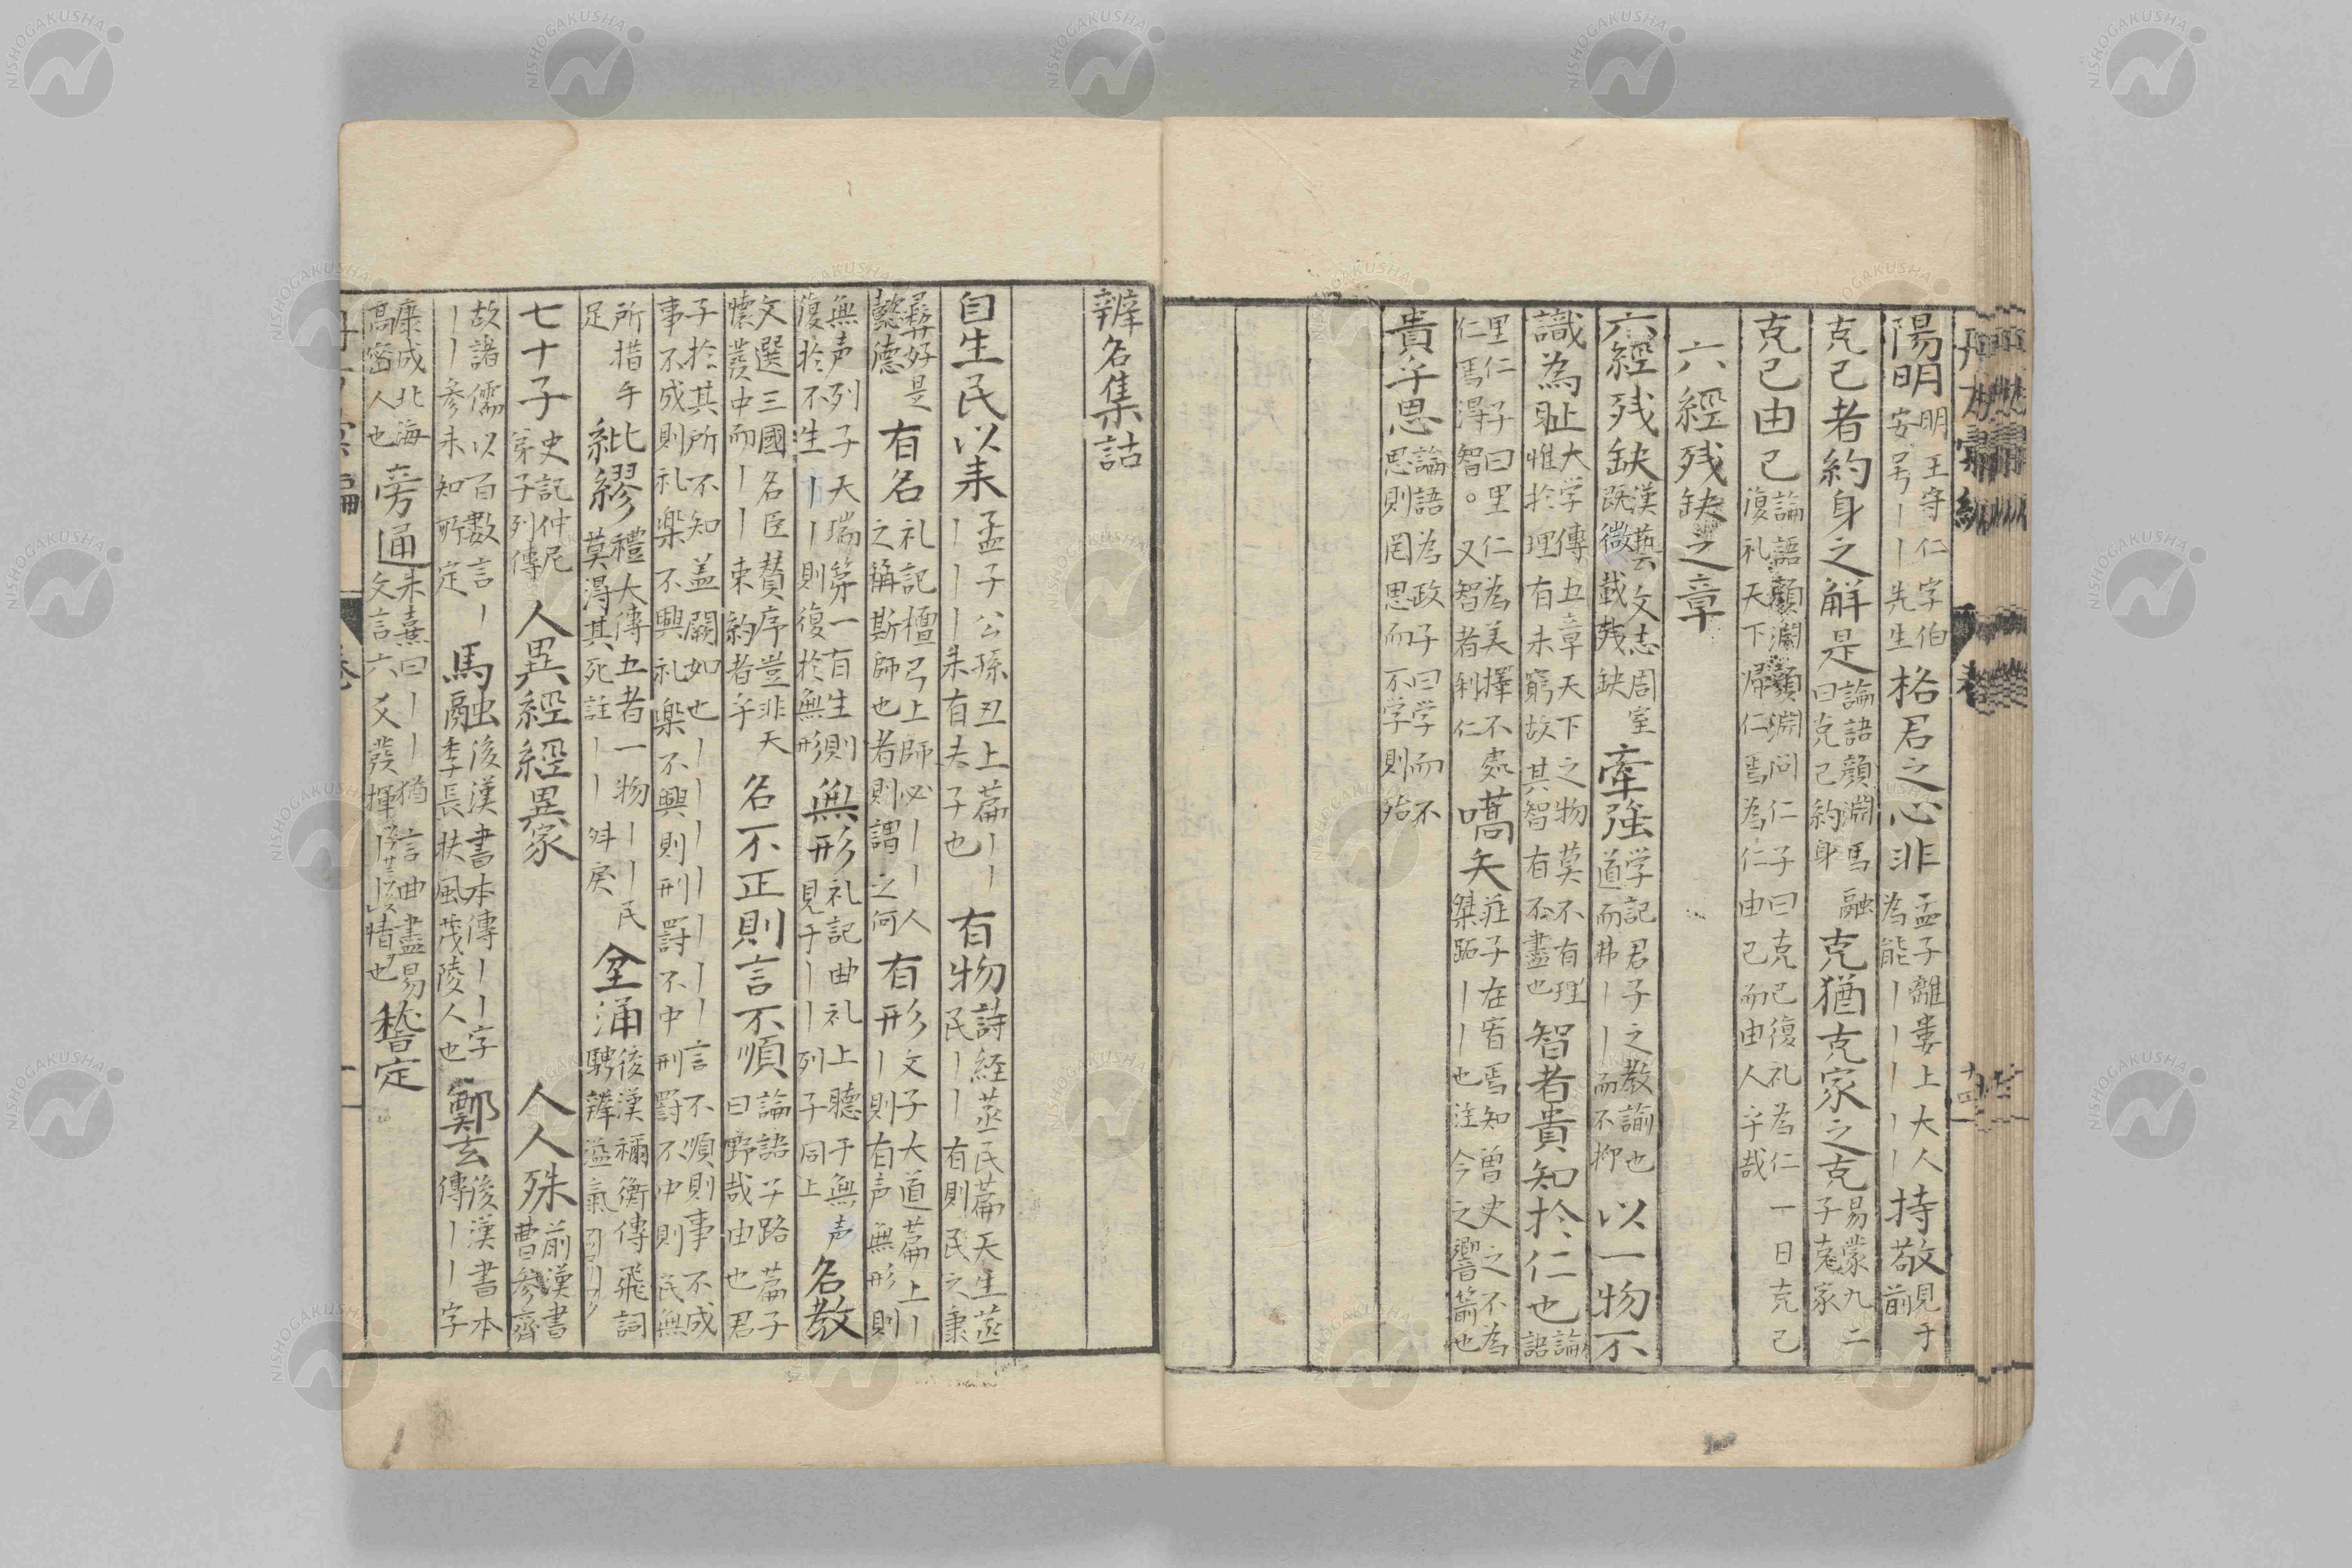 陽明 明王守仁字伯安号丨丨先生 格君之心非 孟子離婁上大人為能丨丨丨丨丨 持敬 見于前
克己者約身之解 是論語顔淵馬融曰克己約身 克猶克家之克 易蒙九二子克家
克己由己 論語顔淵顔淵问仁子曰克己復礼為仁一日克己復礼天下帰仁焉為仁由己而由人乎哉
六經残缺之章
六經残缺 漢藝文志周室既微載残缺 牽強 学記君子之教諭也道而弗丨丨而不抑 以一物不
識為耻 大学傳五章天下之物莫不有理惟於理有未窮故其智有不盡也 智者貴知於仁也 論語
里仁子曰里仁為美擇不處仁焉得智。又智者利仁 嚆矢 莊子在宥焉知曽史之不為桀跖丨丨也注今之響箭也
貴乎思 論語為政子曰学而不思則罔思而不学則殆
辨名集詁
自生民以来 孟子公孫丑上篇丨丨丨丨丨未有夫子也 有物 詩経蒸民篇天生蒸民丨丨有則民之秉
彝好是懿德 有名 礼記檀弓上師必丨丨人之稱斯師也者則謂之何 有形 文子大道篇上丨丨則有声無形則
無声列子天瑞第一有生則復於不生丨丨則復於無形 無形 礼記曲礼上聴于無声見于丨丨列子同上 名教
文選三國名臣賛序豈非天懐發中而丨丨束約者乎 名不正則言不順 論語子路篇子曰野哉由也君
子於其所不知盖闕如也丨丨丨丨丨丨丨言不順則事不成事不成則礼楽不興礼楽不興則刑罰不中刑罰不中則民無
所措手足 紕繆 禮大傳五者一物丨丨民莫得其死註丨丨舛戻 坌涌 後漢禰衡傳飛詞騁辨溢氣丨丨
七十子 史記仲尼弟子列傳 人異經經異家 人人殊 前漢書曹参齊
故諸儒以百數言丨丨丨参未知所定 馬融 後漢書本傳丨丨字季長扶風茂陵人也 鄭玄 後漢書本傳丨丨字
康成北海高密人也 旁通 朱熹曰丨丨猶言曲盡易文言六爻發揮丨丨情也 稽定